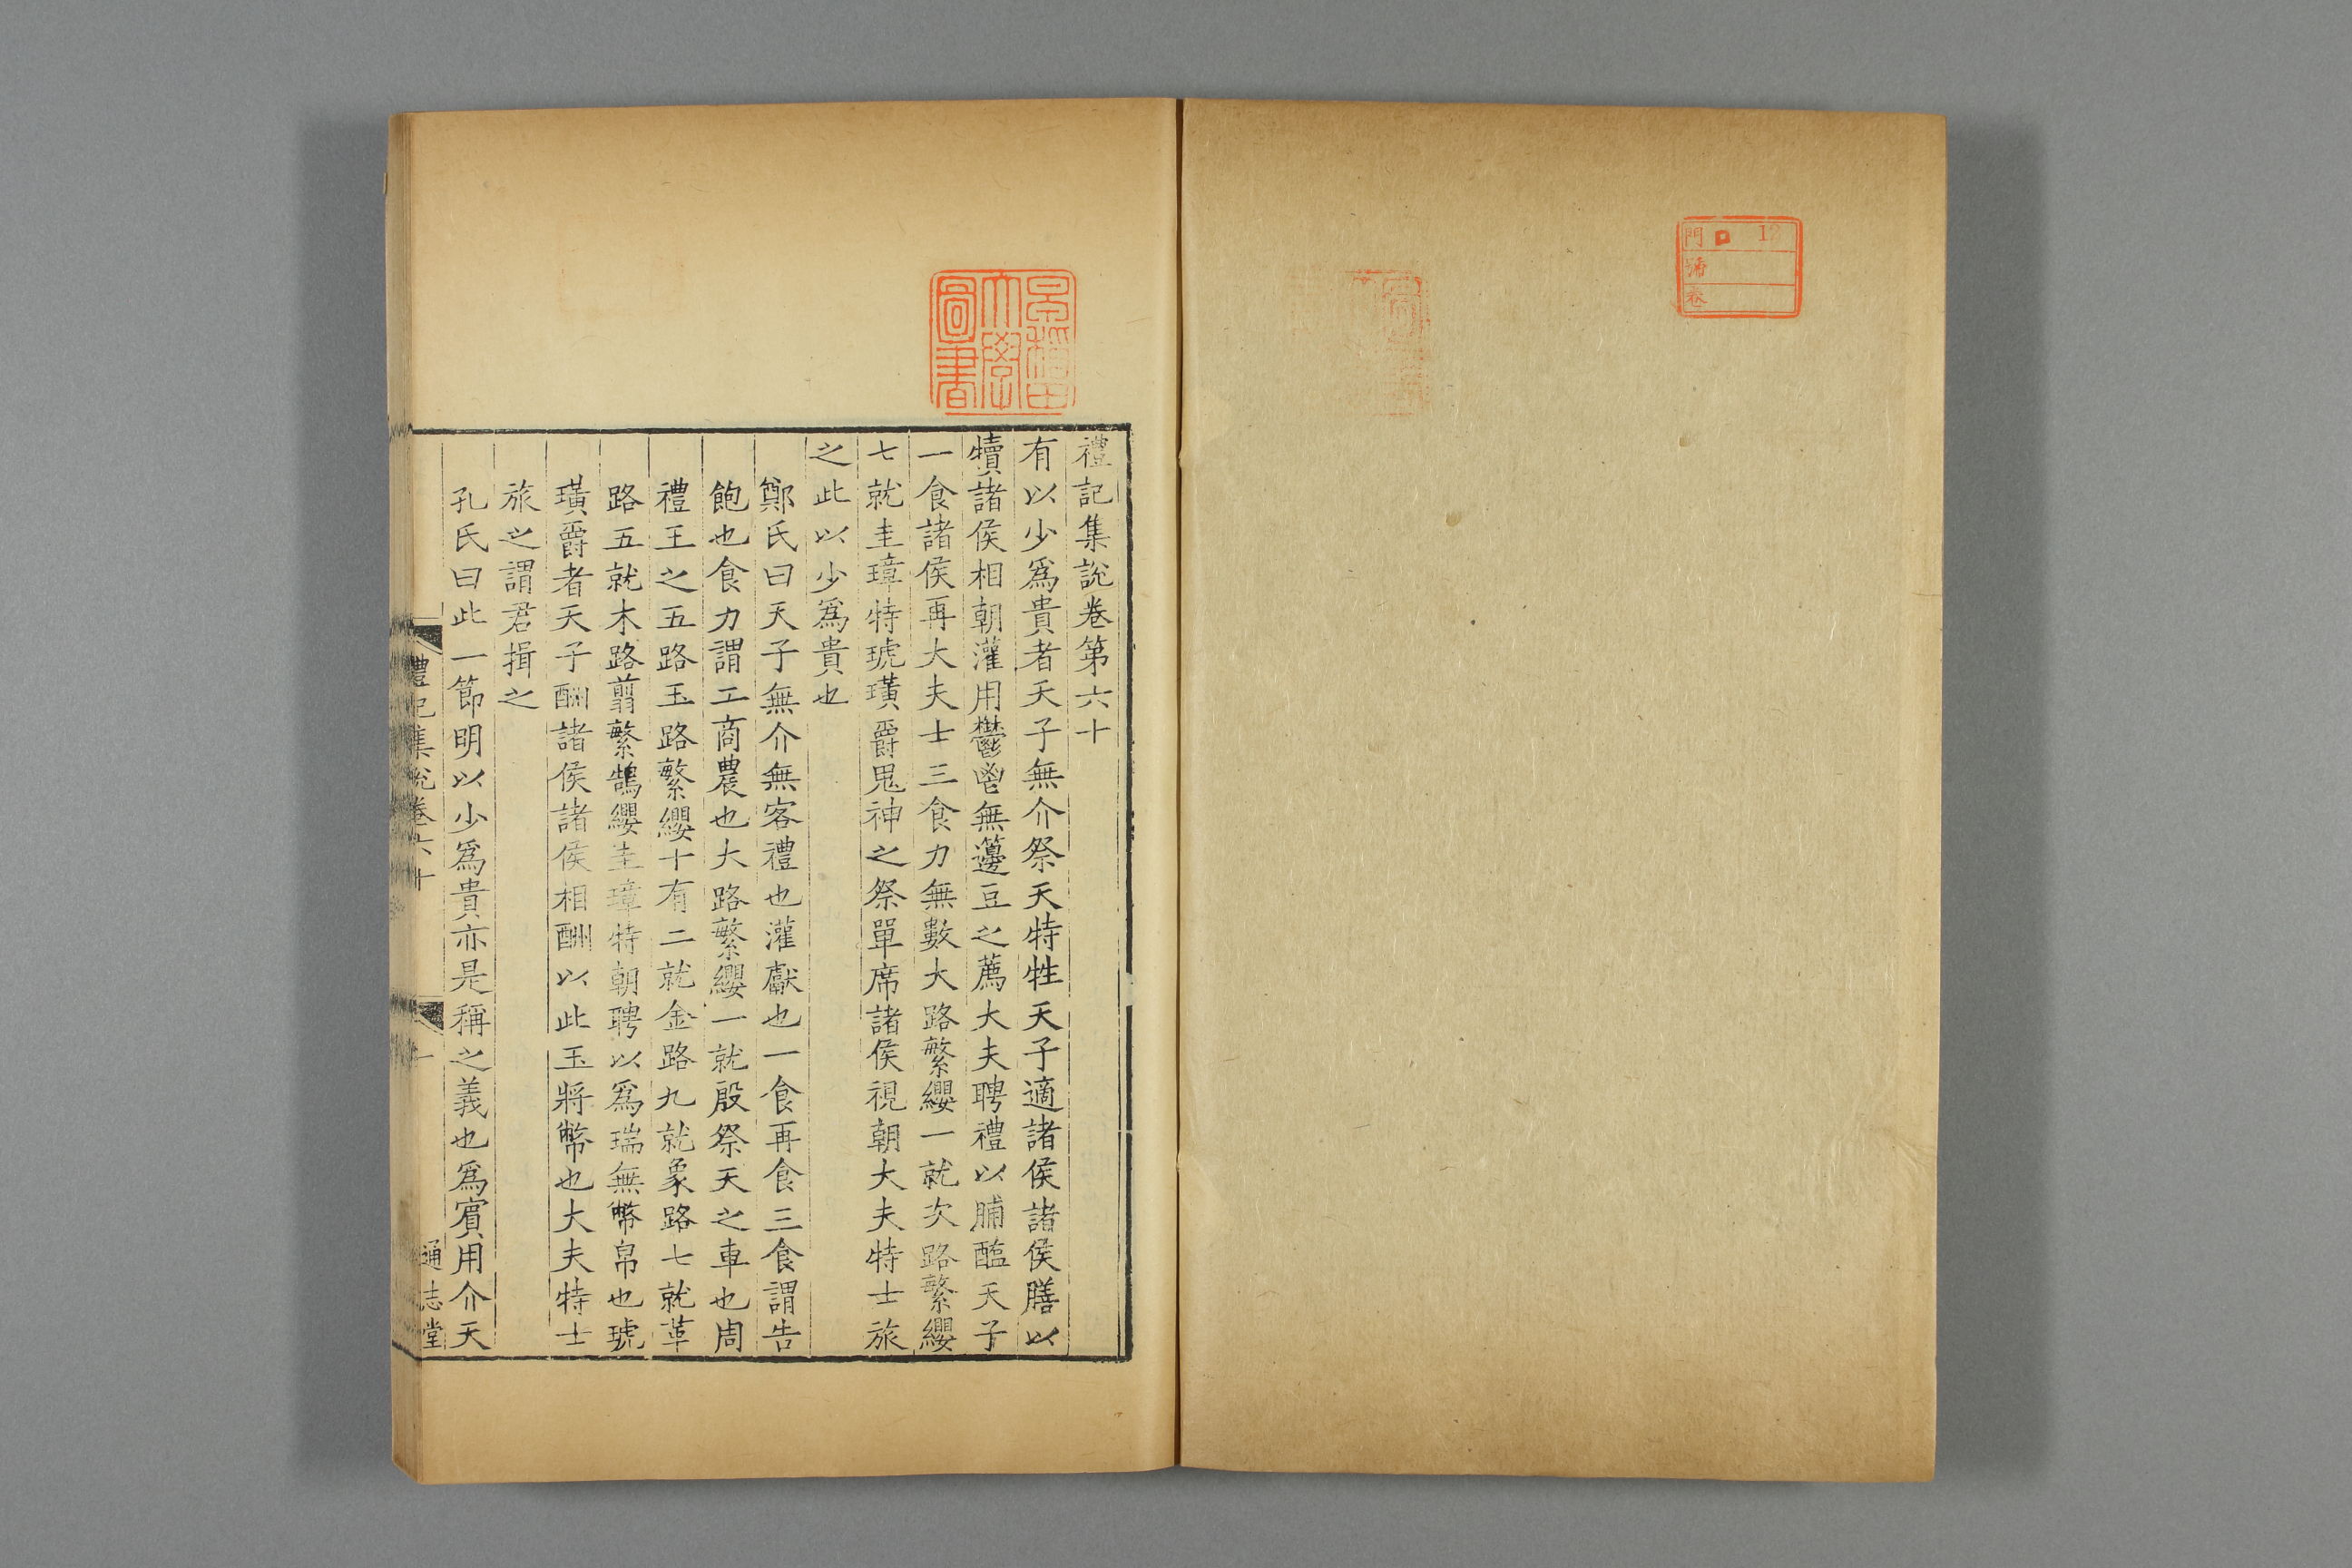 門 12
號
卷
早稲田
大學
圖書
禮記集說卷第六十
有以少爲貴者天子無介祭天特牲天子適諸侯諸侯膳以
犢諸侯相朝灌用鬱鬯無籩豆之薦大夫聘禮以脯醢天子
一食諸侯再大夫士三食力無數大路繁纓一就次路繁纓
七就圭璋特琥璜爵鬼神之祭單席諸侯視朝大夫特士旅
之此以少爲貴也
鄭氏曰天子無介無客禮也灌獻也一食再食三食謂告
飽也食力謂工商農也大路繁纓一就殷祭天之車也周
禮王之五路玉路繁纓十有二就金路九就象路七就革
路五就木路翦繁鵠纓圭璋特朝聘以爲瑞無幣帛也琥
璜爵者天子酬諸侯諸侯相酬以此玉將幣也大夫特士
旅之謂君揖之
孔氏曰此一節明以少爲貴亦是稱之義也爲賓用介天
禮記集說卷六十 一 通志堂